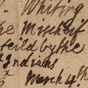 Whiting
the Mischief
by the
Indians
March 4th